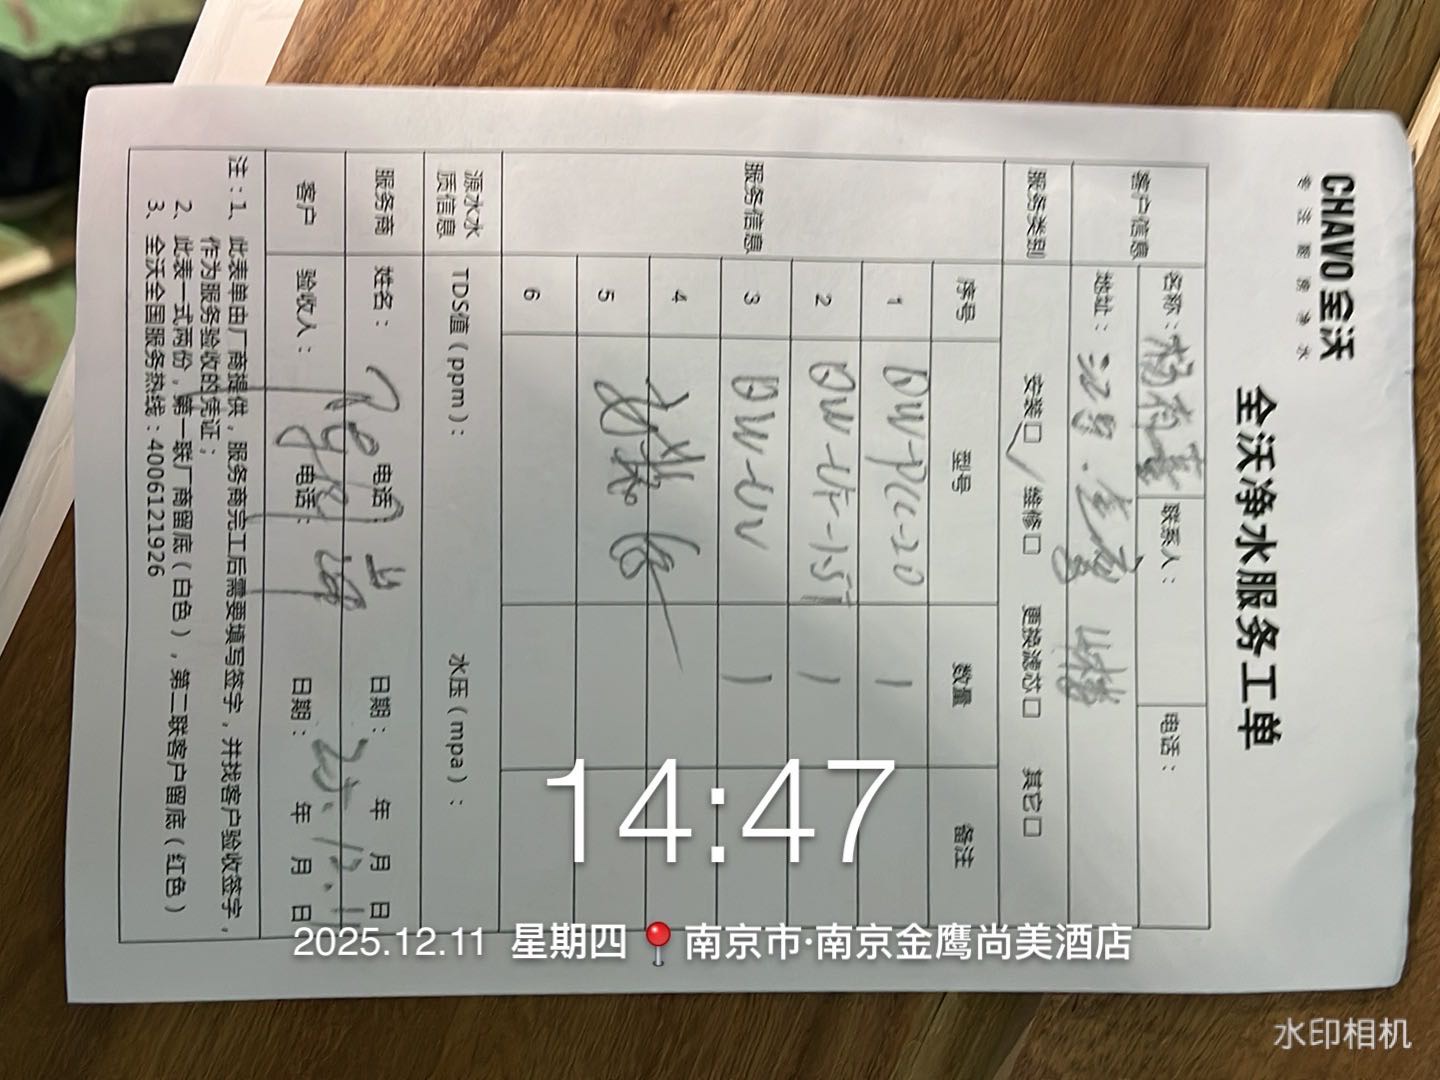 CHAVO 全沃
专注厨房净水
全沃净水服务工单
客户信息
名称：
联系人：
电话：
地址：
服务类别
安装☐✓ 维修☐ 更换滤芯☐ 其它☐
服务信息
序号 型号 数量 备注
1 DW-PCC-20 1
2 DW-UF-15T 1
3 DW-UV 1
4
5
6
源水水质信息
TDS值（ppm）： 水压（mpa）：
服务商 姓名： 电话： 日期： 年 月 日
客户 验收人： 电话： 日期： 年 月 日
注：1、此表单由厂商提供，服务商完工后需要填写签字，并找客户验收签字，
作为服务验收的凭证；
2、此表一式两份，第一联厂商留底（白色），第二联客户留底（红色）
3、全沃全国服务热线：4006121926
14:47
2025.12.11 星期四 南京市·南京金鹰尚美酒店
水印相机